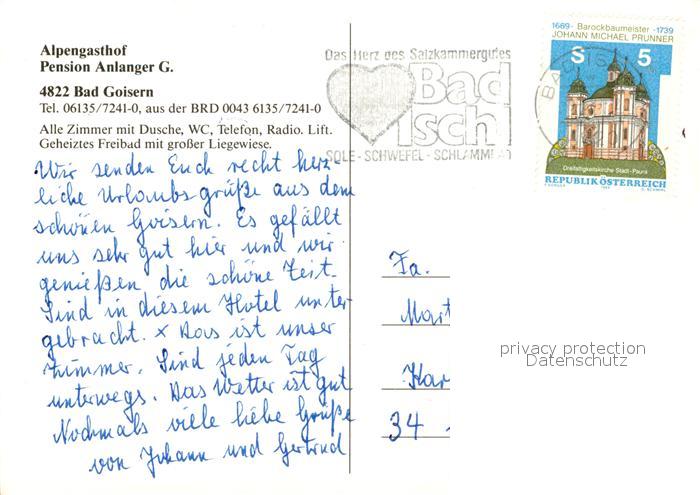 Alpengasthof
Pension Anlanger G.
4822 Bad Goisern
Tel. 06135/7241-0, aus der BRD 0043 6135/7241-0
Alle Zimmer mit Dusche, WC, Telefon, Radio. Lift.
Geheiztes Freibad mit großer Liegewiese.
Wir senden Euch recht herz-
liche Urlaubsgrüße aus dem
schönen Goisern. Es gefällt
uns sehr gut hier und wir
genießen die schöne Zeit.
Sind in diesem Hotel unter
gebracht. x Das ist unser
Zimmer. Sind jeden Tag
unterwegs. Das Wetter ist gut
Nochmals viele liebe Grüße
von Johann und Gertrud
Das Herz des Salzkammergutes
Bad
Ischl
SOLE - SCHWEFEL - SCHLAMM
BAD
1689 - Barockbaumeister - 1739
JOHANN MICHAEL PRUNNER
S 5
Dreifaltigkeitskirche Stadl-Paura
REPUBLIK ÖSTERREICH
Fa.
Mart
Kar
34
privacy protection
Datenschutz